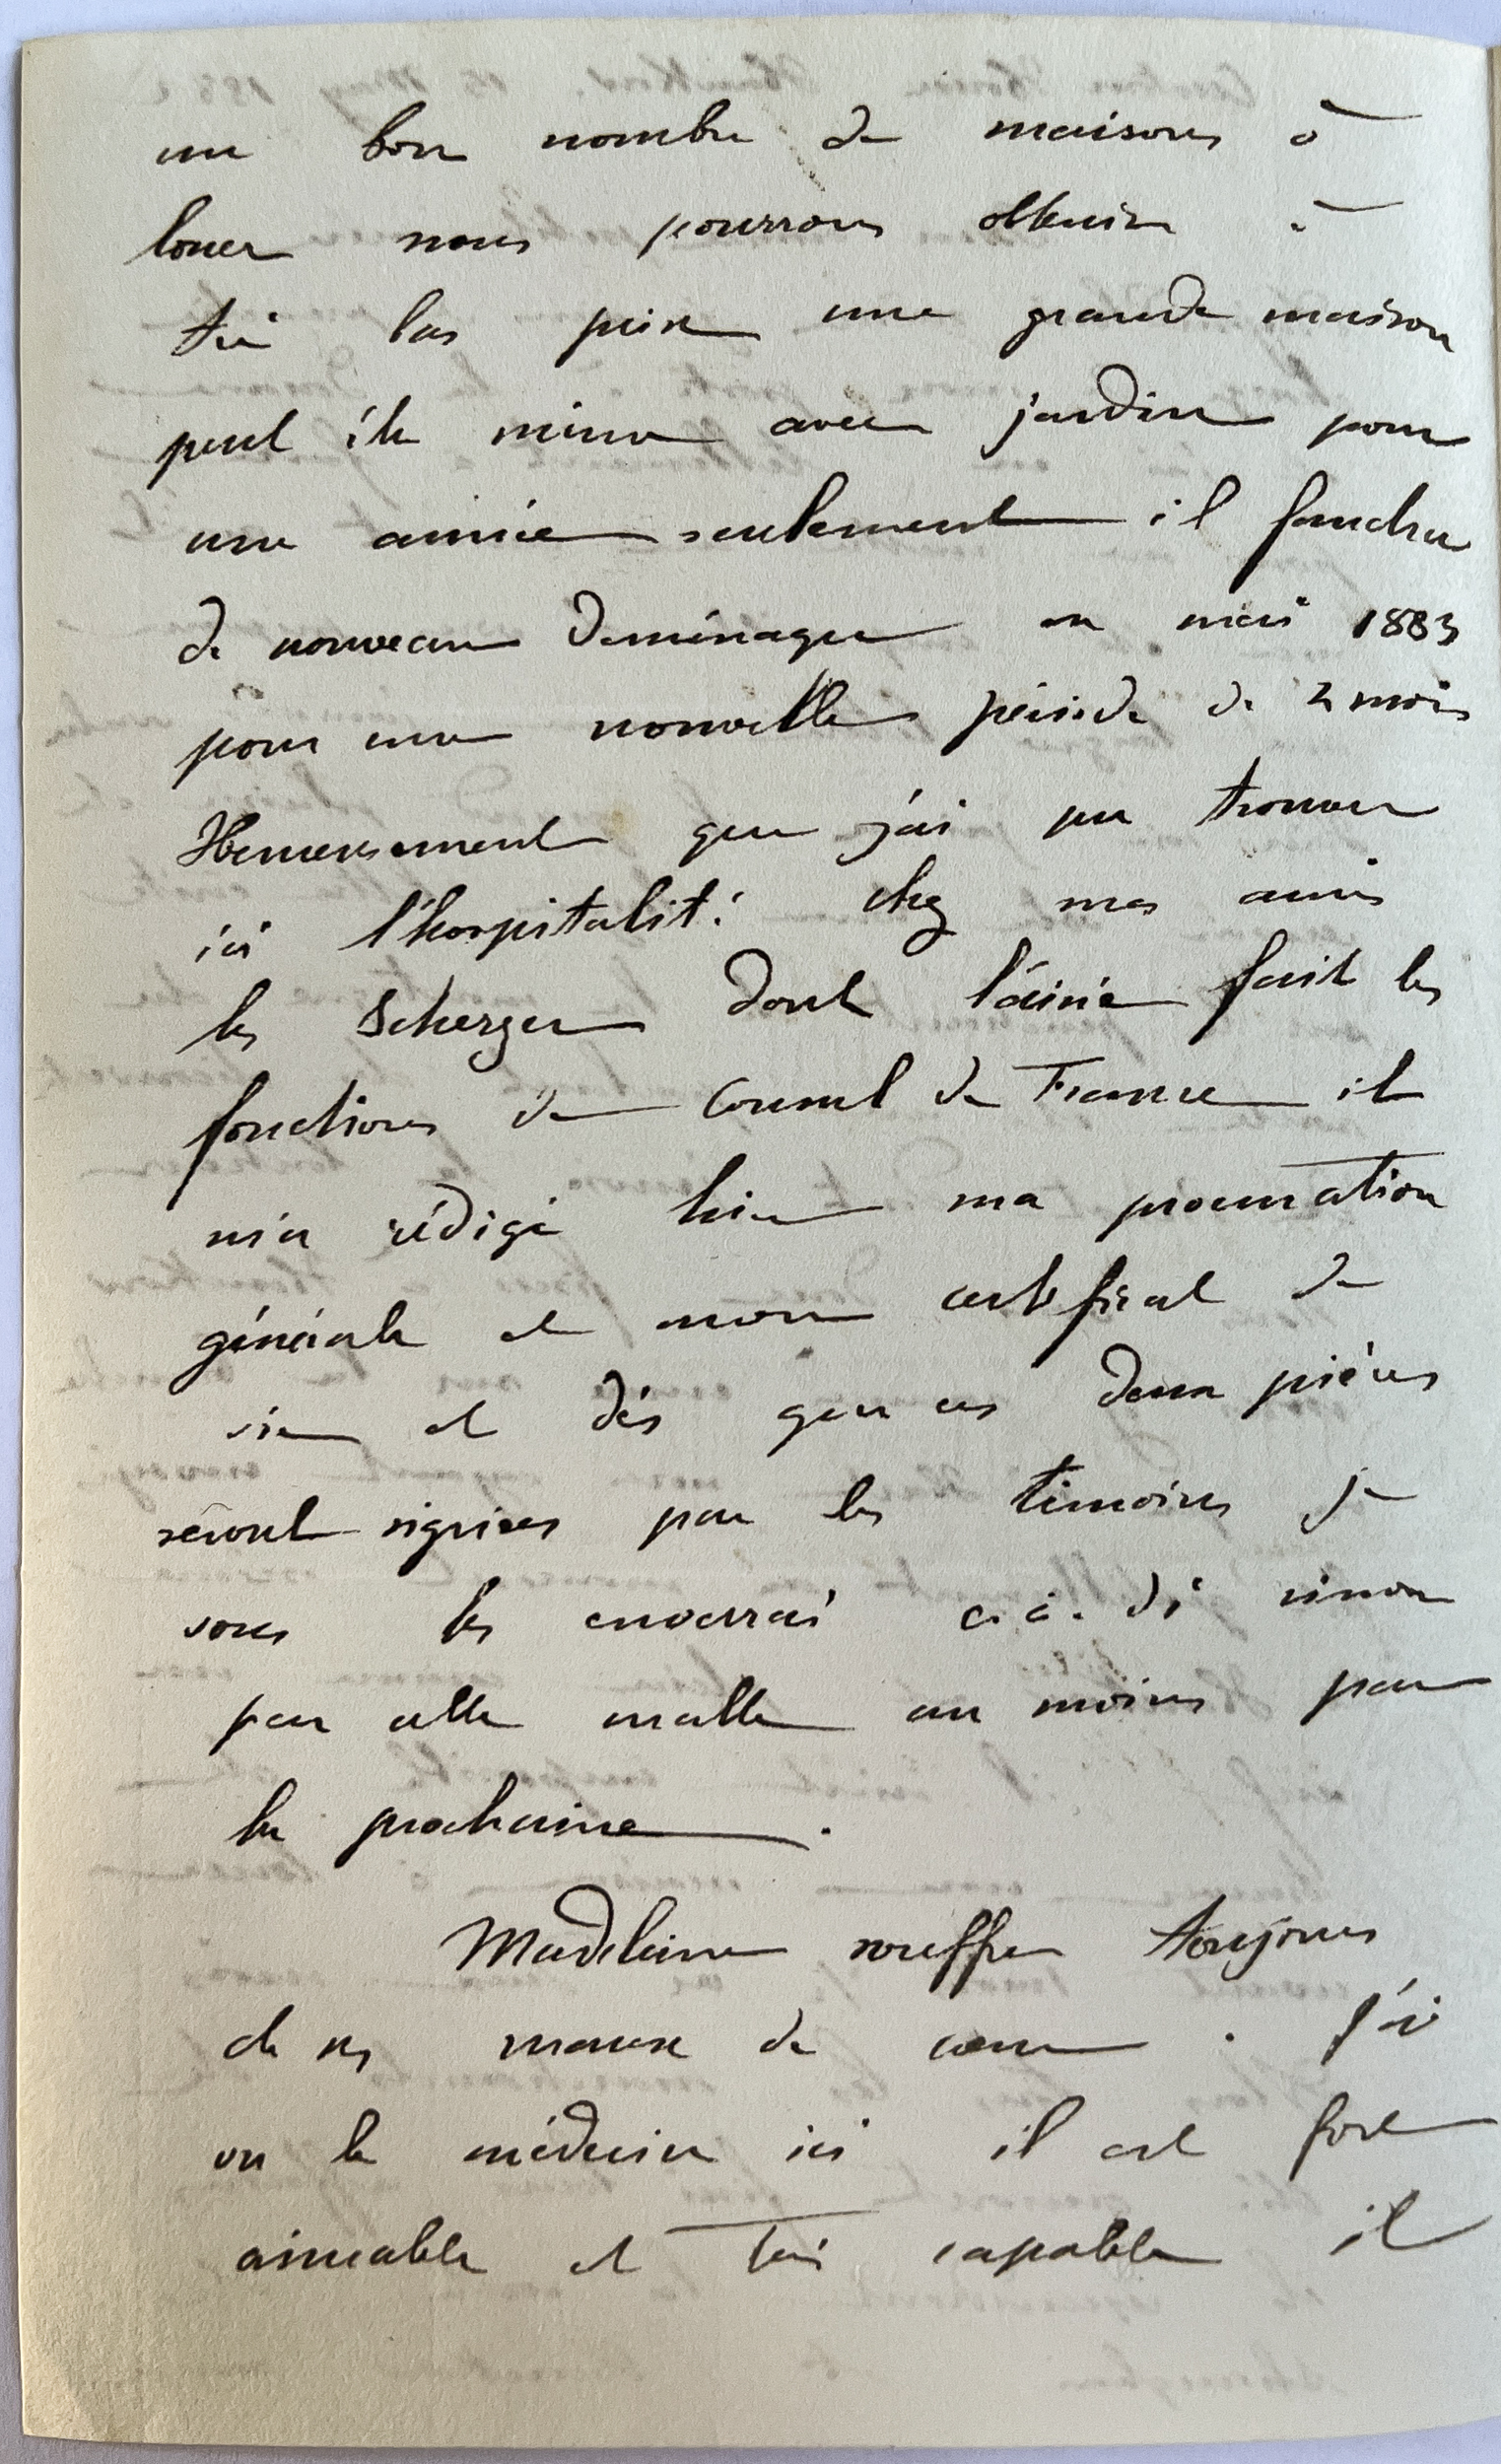 un bon nombre de maisons à
louer nous pourrons obtenir à
très bas prix une grande maison
peut être même avec jardin pour
une année seulement il faudra
de nouveau déménager en mai 1883
pour une nouvelle période de 2 mois
Heureusement que j'ai pu trouver
ici l'hospitalité chez mes amis
les Scherzer dont l'ainé fait les
fonctions de Consul de France il
m'a rédigé hier ma procuration
générale et mon certificat de
vie et dès que ces deux pièces
seront signées par les témoins je
vous les enverrai sinon
par cette malle au moins par
la prochaine.
Madeleine souffre toujours
de ses maux de coeur. J'ai
vu le médecin ici il est fort
aimable et très capable il